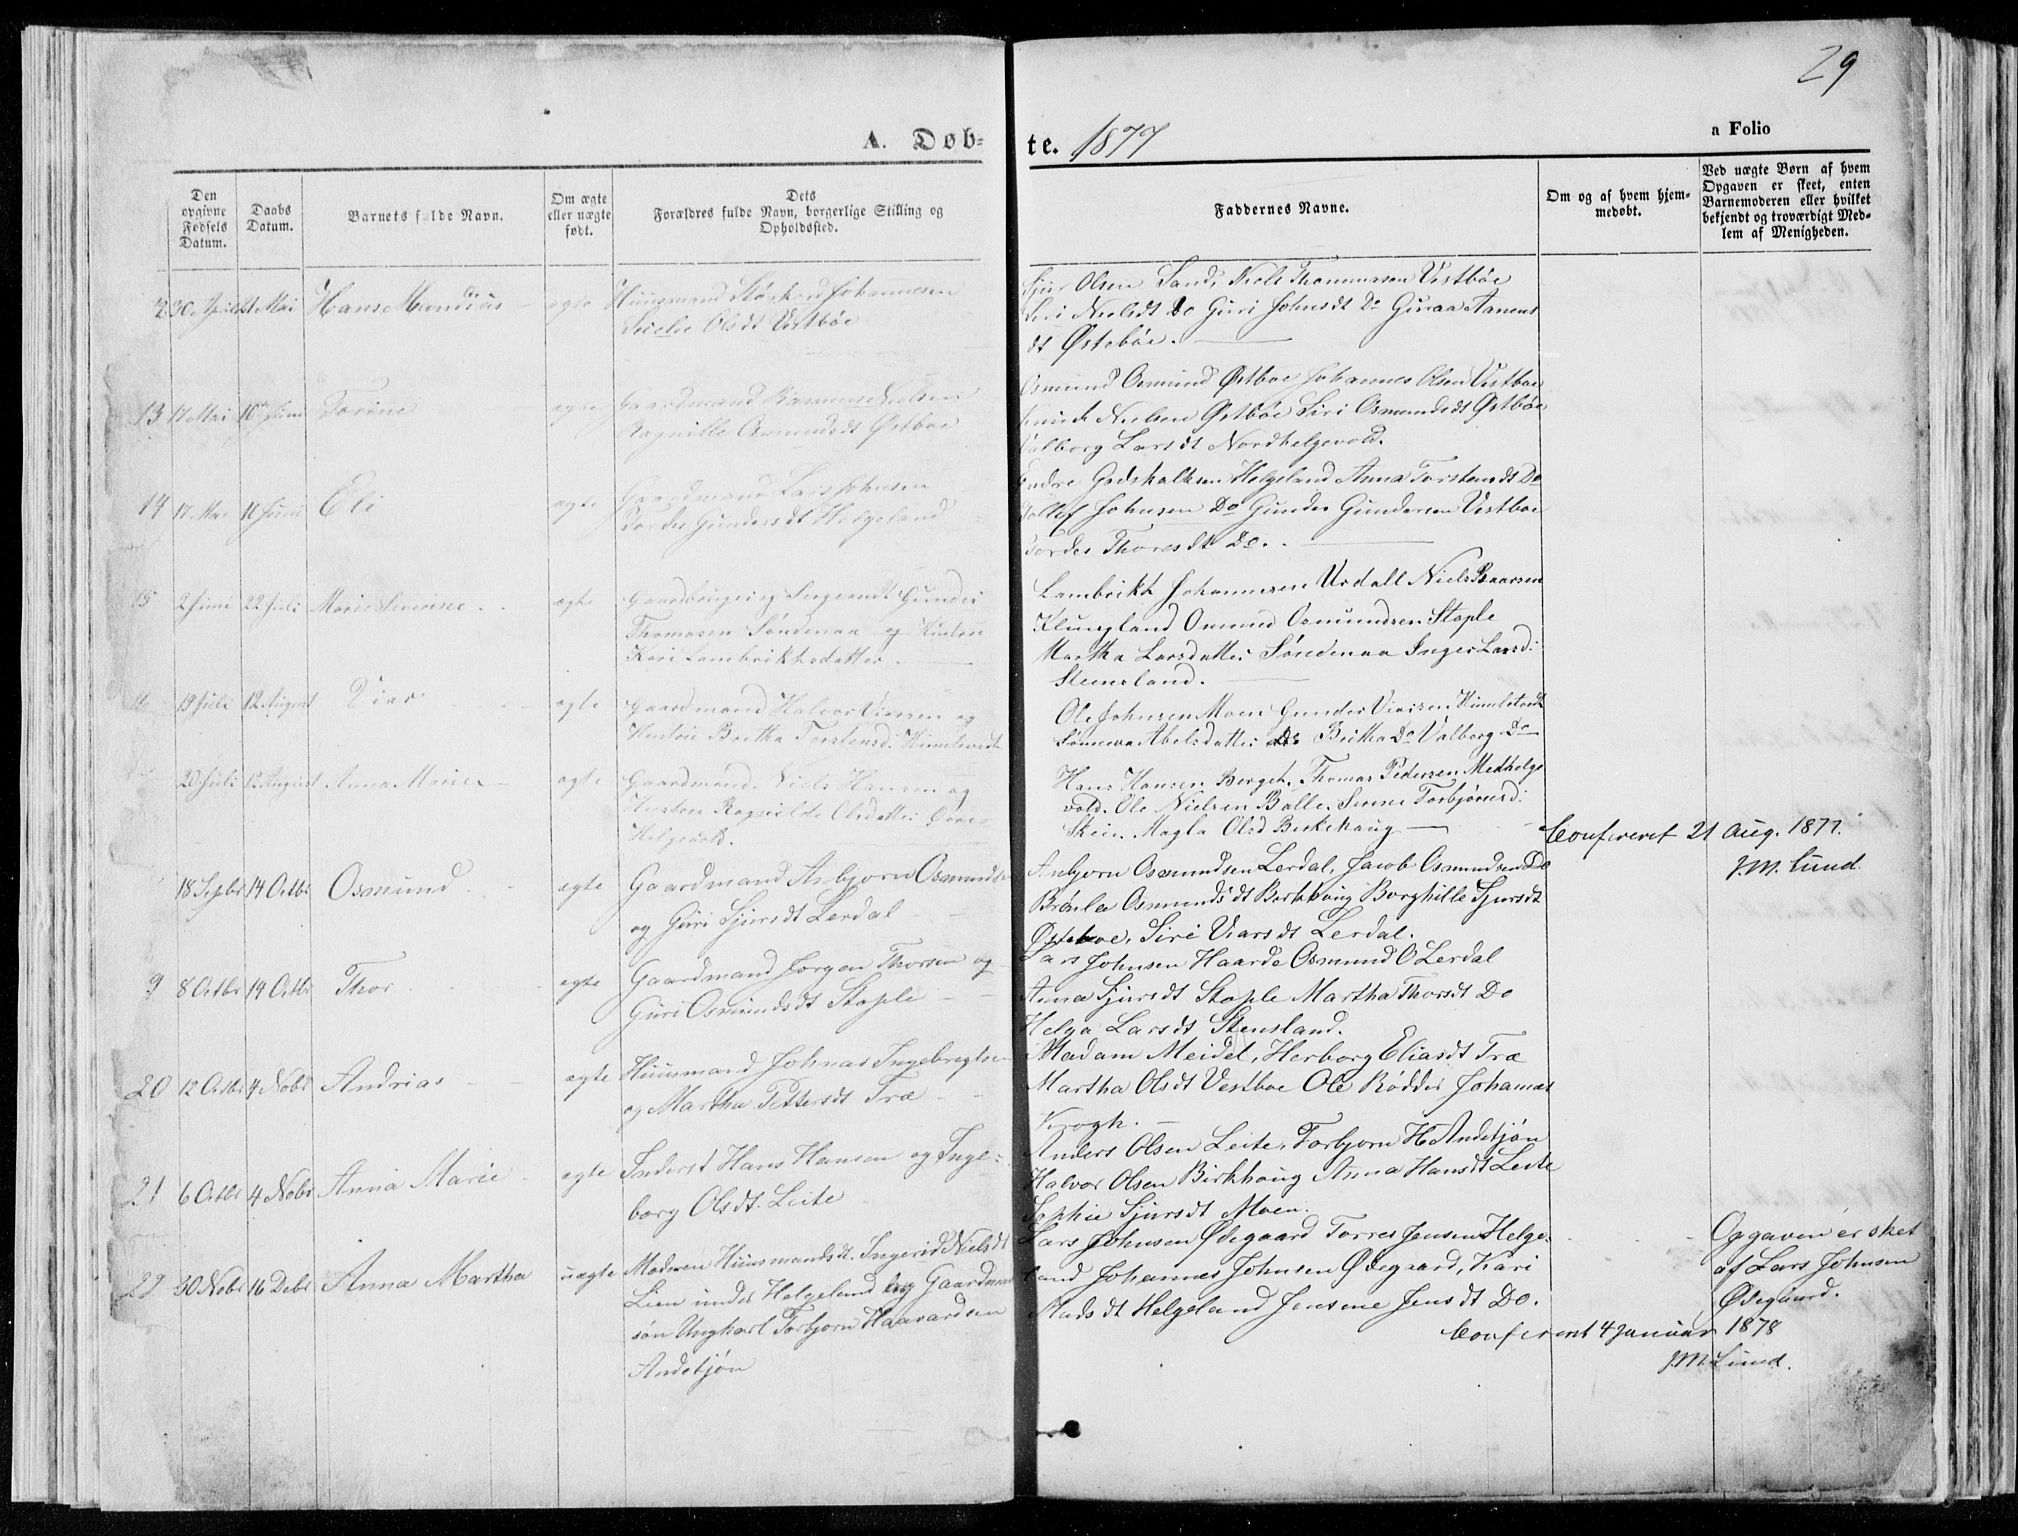 29
A. Døb-
te. 1877
a Folio
Den opgivne Fødsels Datum.
Daabs Datum.
Barnets fulde Navn.
Om ægte eller uægte født.
Dets Forældres fulde Navn, borgerlige Stilling og Opholdssted.
Faddernes Navne.
Om og af hvem hjemmedøbt.
Ved uægte Børn af hvem Opgaven er skeet, enten Barnemoderen eller hvilket bekjendt og troværdigt Medlem af Menigheden.
30 April Mai Hans ægte Huusmand Johannesen
Olsdt Vestbøe
Olsen Sand, Niels Thommasen Vestbøe
Siri Nielsdt Do Guri Johnsdt Do Aanens
dt Østebøe.
13 17 Mai 10 Juni Torine ægte Gaardmand Nielsen
Osmundsdt Østboe
Osmund Osmund Østboe Johannes Olsen Vestboe
Nielsen Østbøe Siri Osmundsdt Østbøe
Valborg Larsdt Nordhelgevold.
14 17 Mai Juni Eli ægte Gaardmand Lars Johnsen
Gundersdt Helgeland
Endre Godskalksen Helgeland Anna Torstensdt Do
Tollef Johnsen Do Gunder Gundersen Vestboe
Thoresdt Do.
15 2 Juni 22 Juli Marie Severine ægte Gaardbruger og Sergeant Gunder
Thomasen Søndenaa og Hustru
Kari Lambrikthsdatter.
Lambrikt Johannesen Urdall Niels
Klungland Omund Osmundsen Stople
Martha Larsdatter Søndenaa Inger Larsd.
Steensland.
19 Juli 12 August Viar ægte Gaardmand Halvor Viarsen og
Hustru Bertha Torstensd.
Ole Johnsen Moen Gunder Viarsen
Abelsdatter Do Bertha Do Valborg Do
20 Juli 12 August Anna Marie ægte Gaardmand Niels Hansen og
Hustru Olsdatter
Helgevold.
Hans Hansen Berget, Thomas Pedersen Medhelge
vold. Ole Nielsen Balle, Torbjørnsd.
Skeie, Magla Olsd Birkehaug
Confereret 21 Aug. 1877.
J.M. Lund.
18 Septbr 14 Octbr Osmund ægte Gaardmand Asbjørn Osmundsen
og Guri Sjursdt Lerdal
Asbjørn Osmundsen Lerdal, Jacob Osmundsen Do
Osmundsdt Borghille Sjursdt
Østeboe, Siri Viarsdt Lerdal.
9 8 Octbr 14 Octbr Thor ægte Gaardmand Jørgen Thorsen og
Guri Osmundsdt Stople
Lars Johnsen Haarde Osmund O Lerdal
Anna Sjursdt Stople Martha Thorsdt Do
Helga Larsdt Stensland.
20 12 Octbr 4 Nobr Andrias ægte Huusmand Johnas Ingebregtsen
og Martha Pettersdt Træ
Madam Meidel, Herborg Eliasdt Træ
Martha Olsdt Vestboe Ole Rødder Johannes
Krogh.
21 6 Octbr 4 Nobr Anna Marie ægte Inderst Hans Hansen og Inge-
borg Olsdt. Leite
Anders Olsen Leite, Torbjørn H Andetjøn
Halvor Olsen Birkhaug Anna Hansdt Leite
Sophie Sjursdt Moen.
22 30 Nobr 16 Debr Anna Martha uægte Moderen Huusmandsdt. Ingerid Nielsdt
Lien under Helgeland og Gaardman
søn Ungkarl Torbjørn Haavardsen
Andetjøn
Lars Johnsen Ødegaard Torres Jensen Helge-
land Johannes Johnsen Ødegaard, Kari
Madsdt Helgeland Jensine Jensdt Do.
Opgaven er sket
af Lars Johnsen
Ødegaard.
Confereret 4 Januar 1878
J.M. Lund.